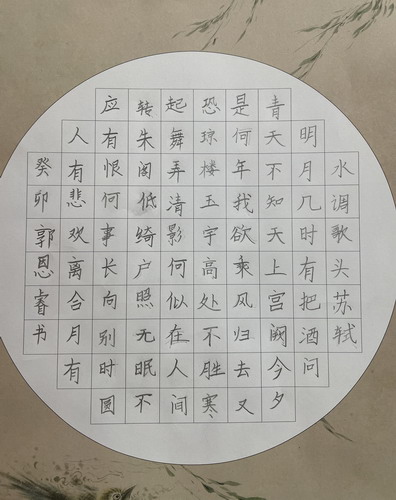 水调歌头苏轼
明月几时有把酒问
青天不知天上宫阙今夕
是何年我欲乘风归去又
恐琼楼玉宇高处不胜寒
起舞弄清影何似在人间
转朱阁低绮户照无眠不
应有恨何事长向别时圆
人有悲欢离合月有
癸卯郭恩睿书